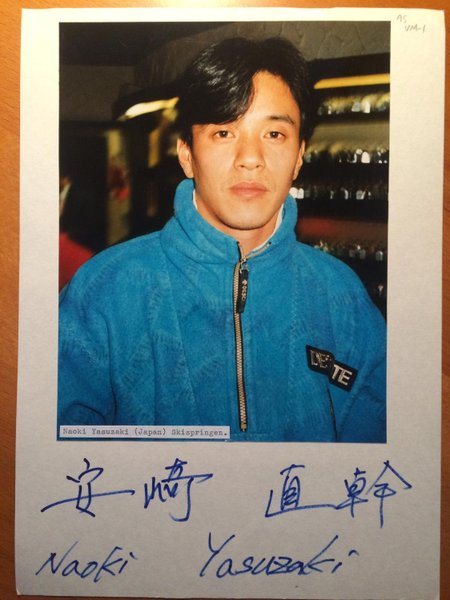 AS
VM-1
DESCENTE
Naoki Yasuzaki (Japan) Skispringen.
安﨑 直幹
Naoki Yasuzaki